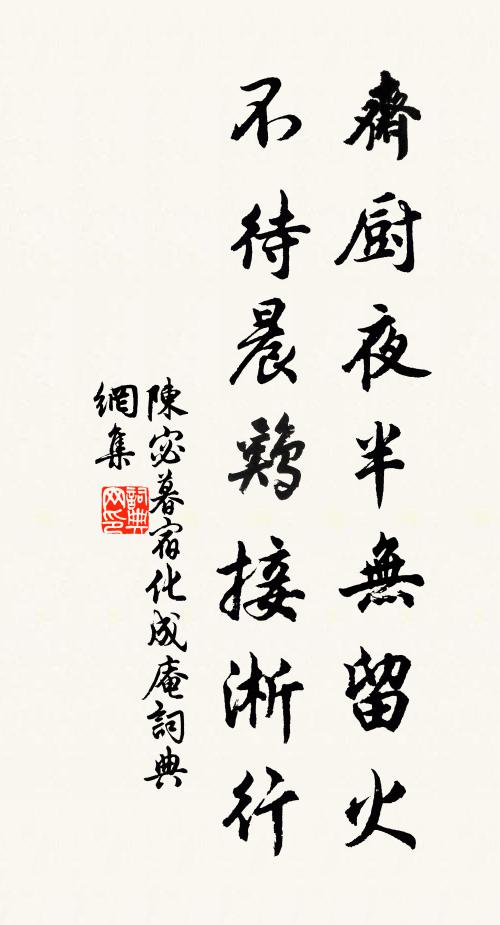 齋厨夜半無留火
不待晨鷄接淅行
陳宓暮宿化成庵詞典
網集
詞典网印